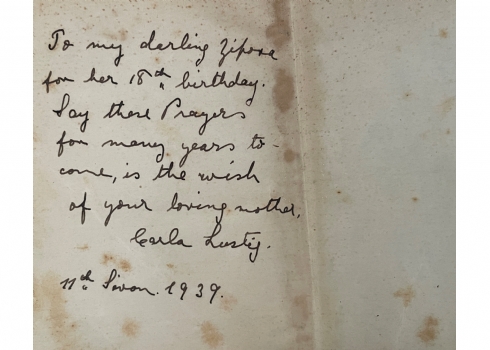 To my darling Zipora
for her 18th birthday.
Say these Prayers
for many years to-
come, is the wish
of your loving mother,
Carla Lustig.
11th Sivan. 1939.